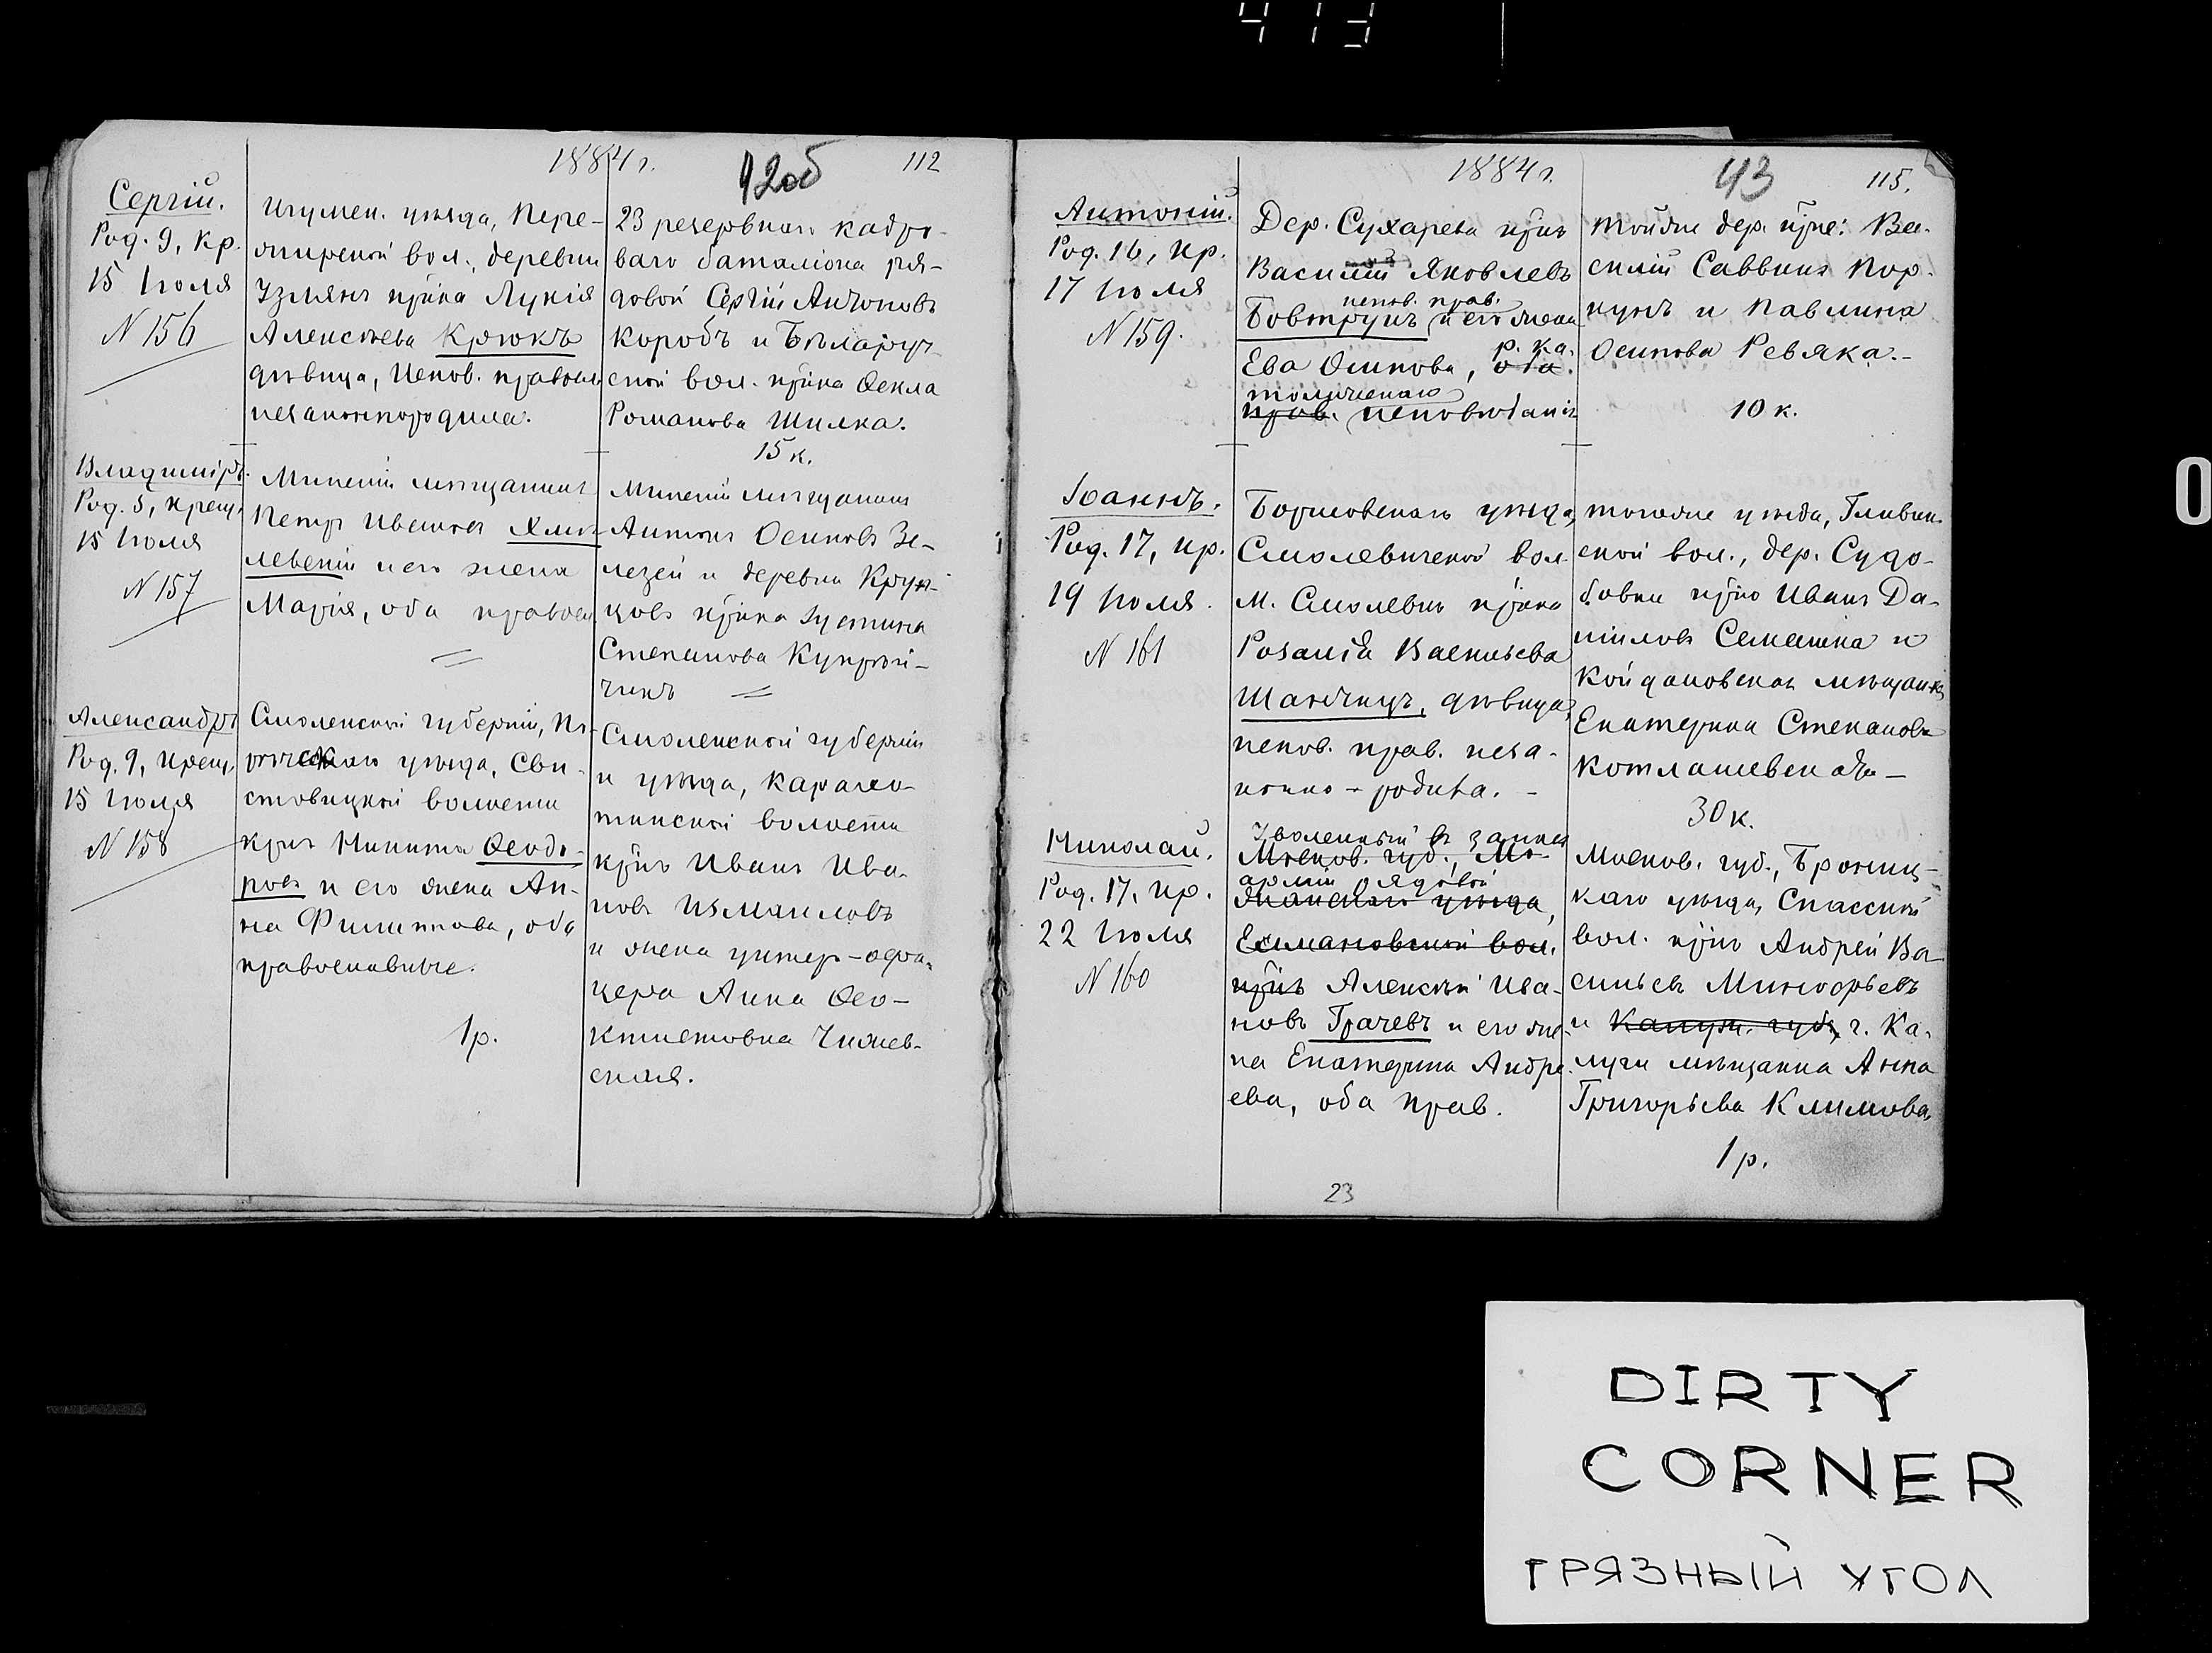 413
1884 г.
42 об
112
Сергій.
Род. 9, Кр.
15 Іюля
N 156
Игумен. уѣзда, Пере-
вол., деревни
Узлянъ кр̃нка Лукія
Алексѣева Крюкъ
дѣвица, испов. православн.
незаконнородила.
23 резервнаго кадро-
ваго баталіона ря-
довой Сергій Антоновъ
Коробъ и Бѣларуч-
ской вол. кр̃нка Ѳекла
Романова Шилка.
15 к.
Владиміръ.
Род. 5, крещ.
15 Іюля
N 157
Минскій мѣщанинъ
Петръ Ивановъ Хмѣ-
левскій и его жена
Марія, оба правосл.
Минскій мѣщанинъ
Антонъ Осиповъ Зе-
лезей и деревни Круп-
цовъ кр̃нка Іустина
Степанова Купрѣй-
чикъ
Александръ
Род. 9, крещ.
15 Іюля
N 158
Смоленской губерніи, По-
рѣчскаго уѣзда, Сви-
стовицкой волости
кр̃нъ Никита Ѳеодо-
ровъ и его жена Ан-
на Филиппова, оба
православные.
1 р.
Смоленской губерніи
и уѣзда,
волости
кр̃нъ Иванъ Ива-
новъ Измаиловъ
и жена унтер-офи-
цера Анна Ѳео-
ктистовна Чижев-
ская.
1884 г.
43
115.
Антоній.
Род. 16, кр.
17 Іюля
N 159.
Дер. Сухарева кр̃нъ
Василій Яковлевъ
испов. прав.
Бовтрукъ и его жена
р. ка.
Ева Осипова, оба
толическаго
прав. исповѣданія
тойже дер. кр̃не: Ва-
силій Саввинъ Кор-
кунъ и Павлина
Осипова Ревяка.-
10 к.
Іоаннъ.
Род. 17, кр.
19 Іюля.
N 161
Борисовскаго уѣзда,
Смолевичской вол.
м. Смолевичъ кр̃нка
Розалія Васильева
Шанчицъ, дѣвица,
испов. прав. неза-
конно-родила. -
тогоже уѣзда, Гливин-
ской вол., дер. Судо-
бовки кр̃нъ Иванъ Да-
ніиловъ Семашка и
Койдановская мѣщанка
Екатерина Степанова
30 к.
Николай.
Род. 17, кр.
22 Іюля
N 160
Уволенный въ запасъ
Москов. губ., Мо-
арміи рядовой
жайскаго уѣзда,
вол.
кр̃нъ Алексѣй Ива-
новъ Грачевъ и его же-
на Екатерина Андре-
ева, оба прав.
Москов. губ., Бронниц-
каго уѣзда, Спасской
вол. кр̃нъ Андрей Ва-
сильевъ
и Калужс. губ., г. Ка-
луги мѣщанка Анна
Григорьева Климова
1 р.
23
0
DIRTY
CORNER
ГРЯЗНЫЙ УГОЛ